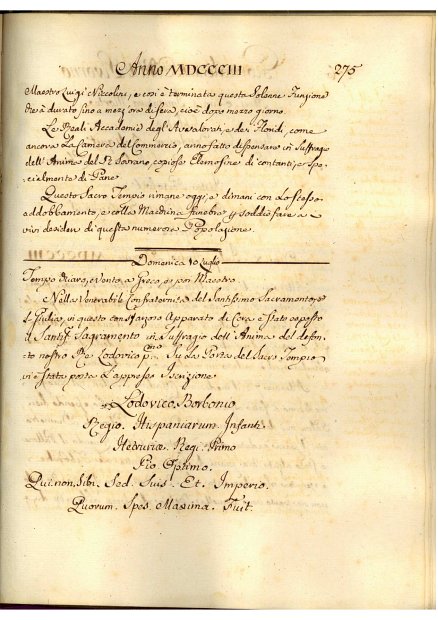 Anno MDCCCIII 275
Maestro Luigi Nizzolini, e così è terminata questa Solenne Funzione
che à durato fino a mezz'ora di sera, cioè dopo mezzo giorno.
Le Reali Accademie degl'Avvalorati, e dei Floridi, come
ancora La Camera del Commercio, anno fatto dispensare in Suffragio
dell'Anima del Sovrano, copiose Elemosine di contanti, e spe,,
cialmente di Pane
Questo Sacro Tempio rimane oggi, e dimani con Lo stesso
addobbamento, e colla Macchina funebre p soddisfare a
vivi desideri di questa numerosa Popolazione.
Domenica 10 Luglio
Tempo chiaro, e Vento a Greco, e poi Maestro
Nella Venerabile Confraternita del Santissimo Sacramento, e
S. Giulia, vi questo con sfarzoso Apparato di Cera è stato esposto
il Santiss.º Sacramento in Suffragio dell'Anima del defon,,
to nostro Re Lodovico p.mo Su La Porta del Sacro Tempio
vi è stata posta L'appresso Iscrizione
Lodovico. Borbonio
Regio. Hispaniarum. Infanti.
Hetruriæ. Regi. Primo
Pio Optimo.
Qui. non. Sibi. Sed. Suis. Et. Imperio.
Quorum. Spes. Maxima. Fuit.